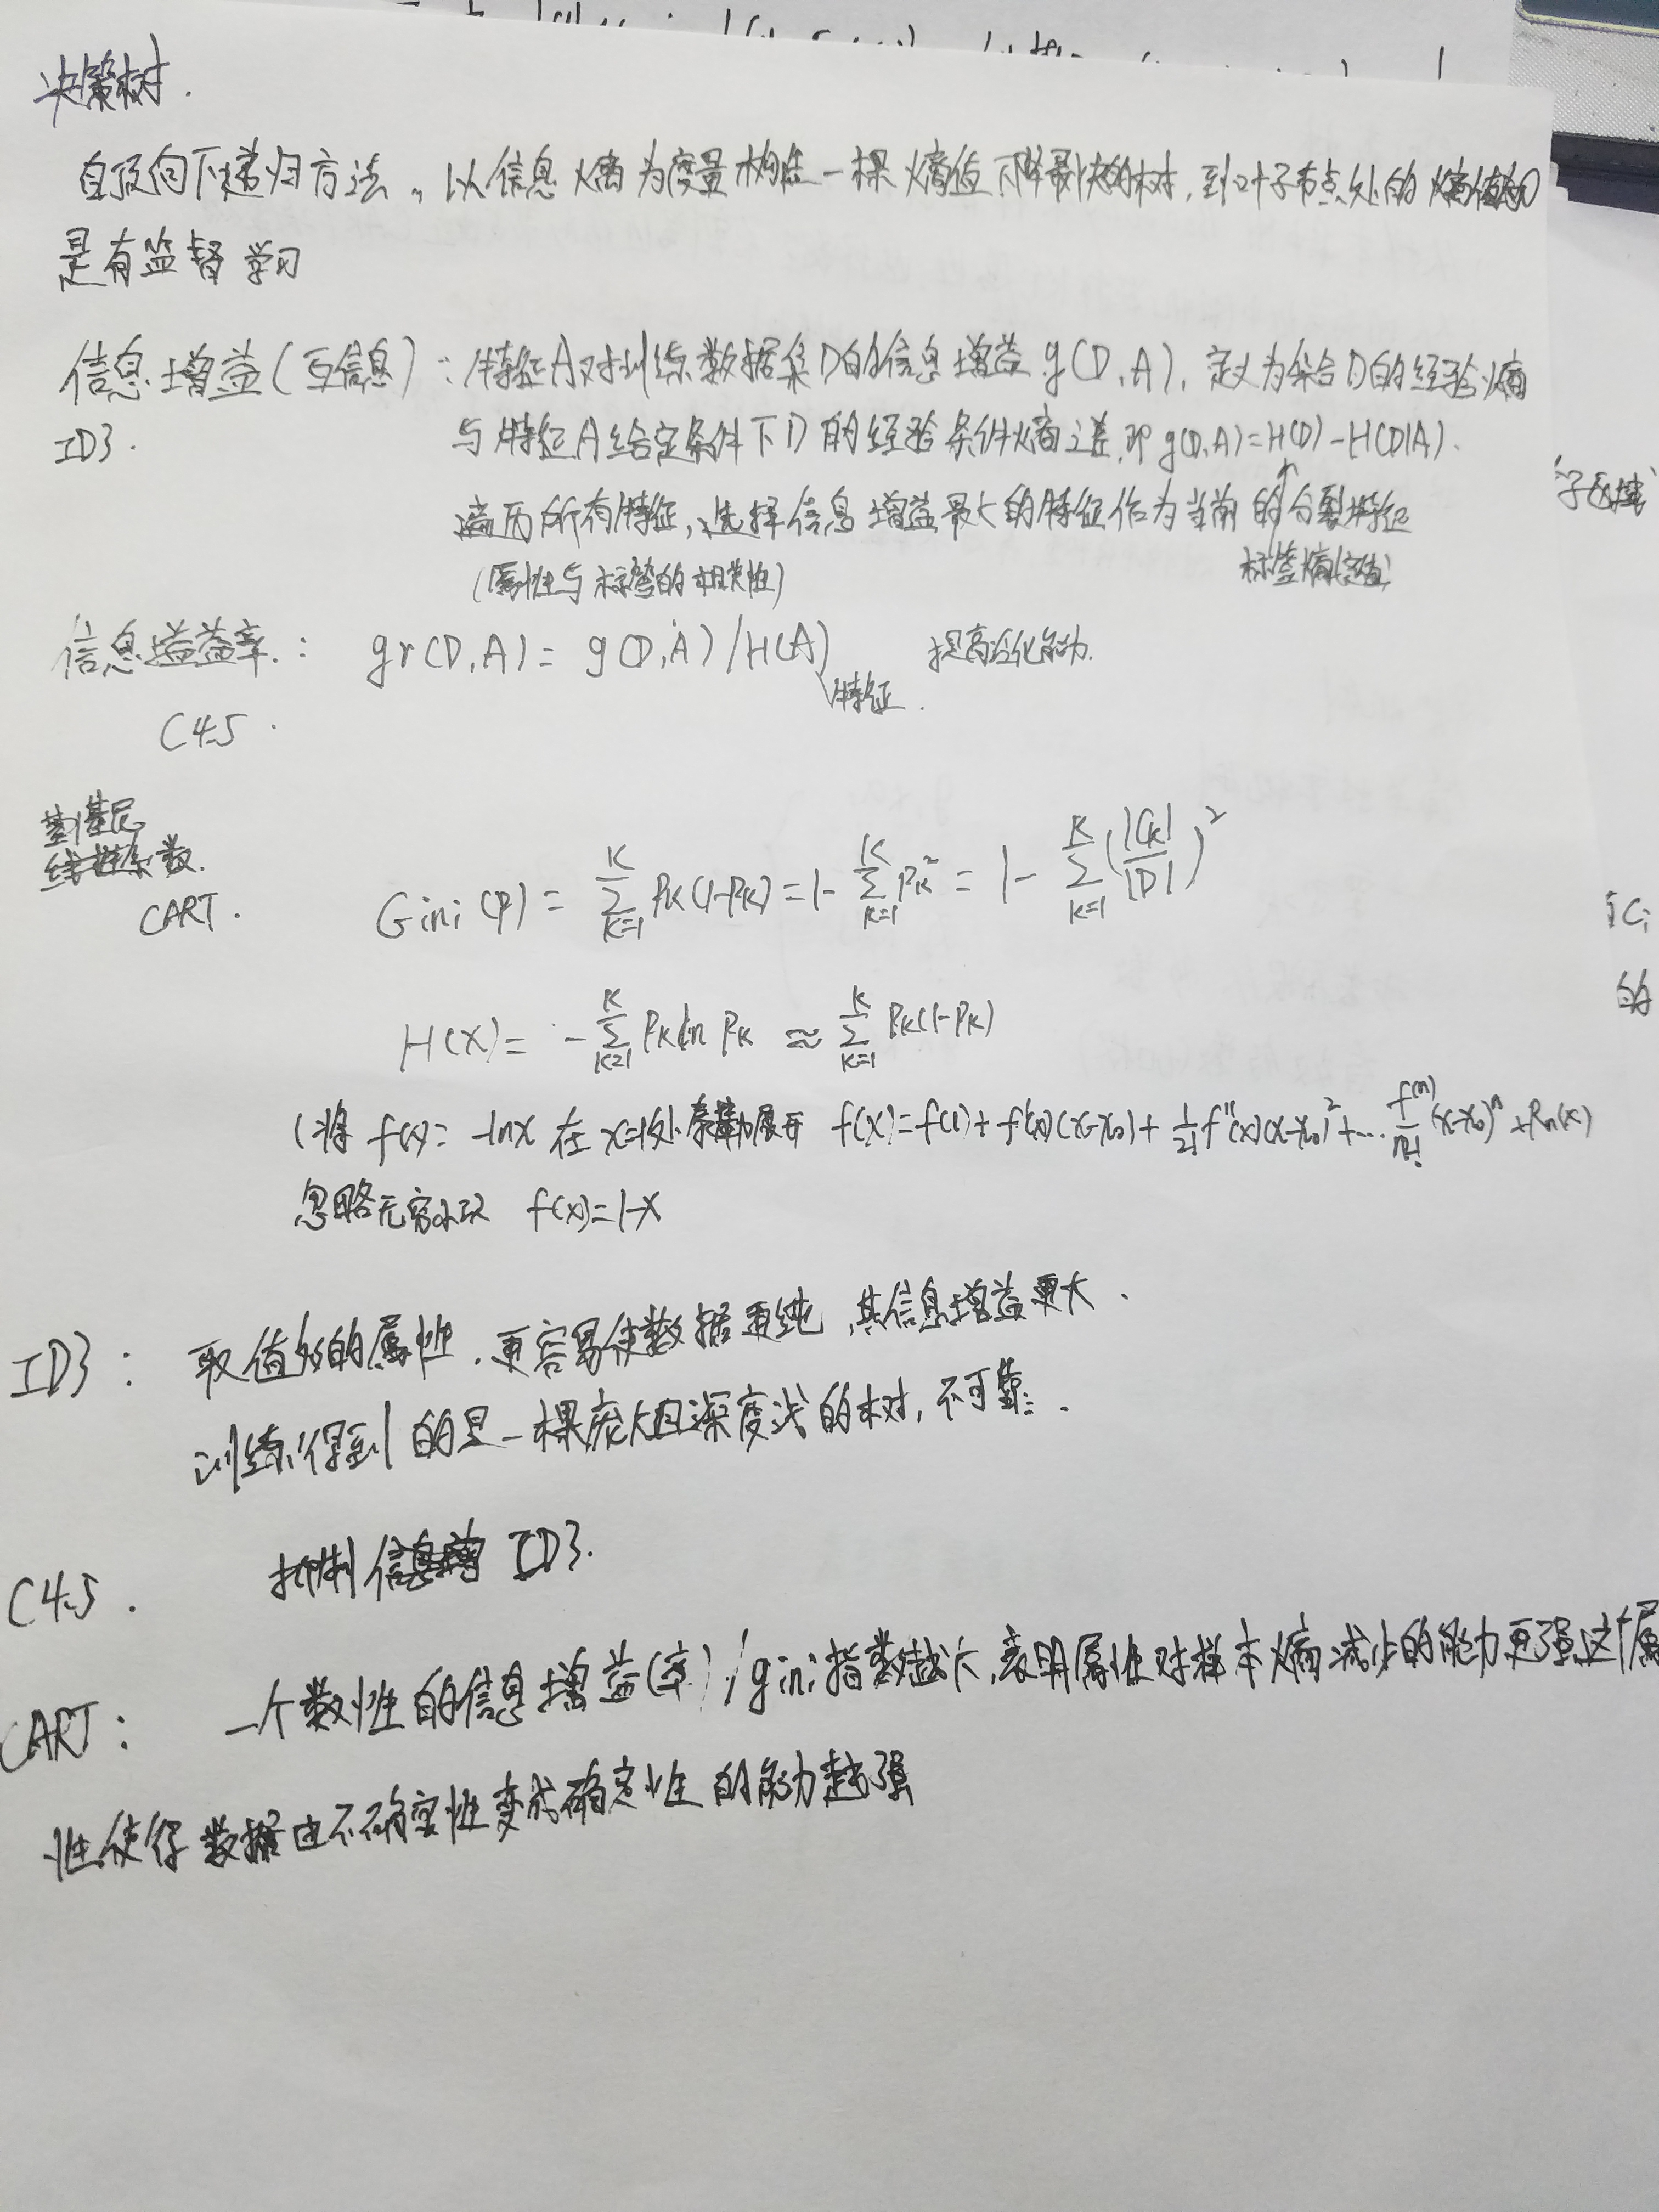 决策树.
自顶向下递归方法,以信息熵为度量构造一棵熵值下降最快的树,到叶子节点处的熵值为0
是有监督学习
信息增益(互信息):特征A对训练数据集D的信息增益g(D,A),定义为集合D的经验熵
ID3. 与特征A给定条件下D的经验条件熵之差,即g(D,A)=H(D)-H(D|A).
遍历所有特征,选择信息增益最大的特征作为当前的分裂特征
(属性与标签的相关性) 标签熵
信息增益率: gr(D,A)=g(D,A)/H(A) 提高泛化能力.
特征.
C4.5.
基尼
系数.
CART. Gini(P)=∑_{K=1}^{K} PK(1-PK)=1-∑_{K=1}^{K} PK²=1-∑_{K=1}^{K}(|CK|/|D|)²
H(X)=-∑_{K=1}^{K} PK ln PK≈∑_{K=1}^{K} PK(1-PK)
(将f(x)=-lnx在x=1处泰勒展开 f(x)=f(1)+f'(x0)(x-x0)+1/2! f''(x)(x-x0)²+…f^(n)/n!(x-x0)^n+Rn(x)
忽略无穷小项 f(x)=1-x
ID3: 取值多的属性,更容易使数据更纯,其信息增益更大.
训练得到的是一棵庞大且深度浅的树,不可靠.
C4.5. 抑制 ID3.
CART: 一个数性的信息增益(率)/gini指数越大,表明属性对样本熵减少的能力更强,这个属
性使得数据由不确定性变成确定性的能力越强
子区域
Ci
的